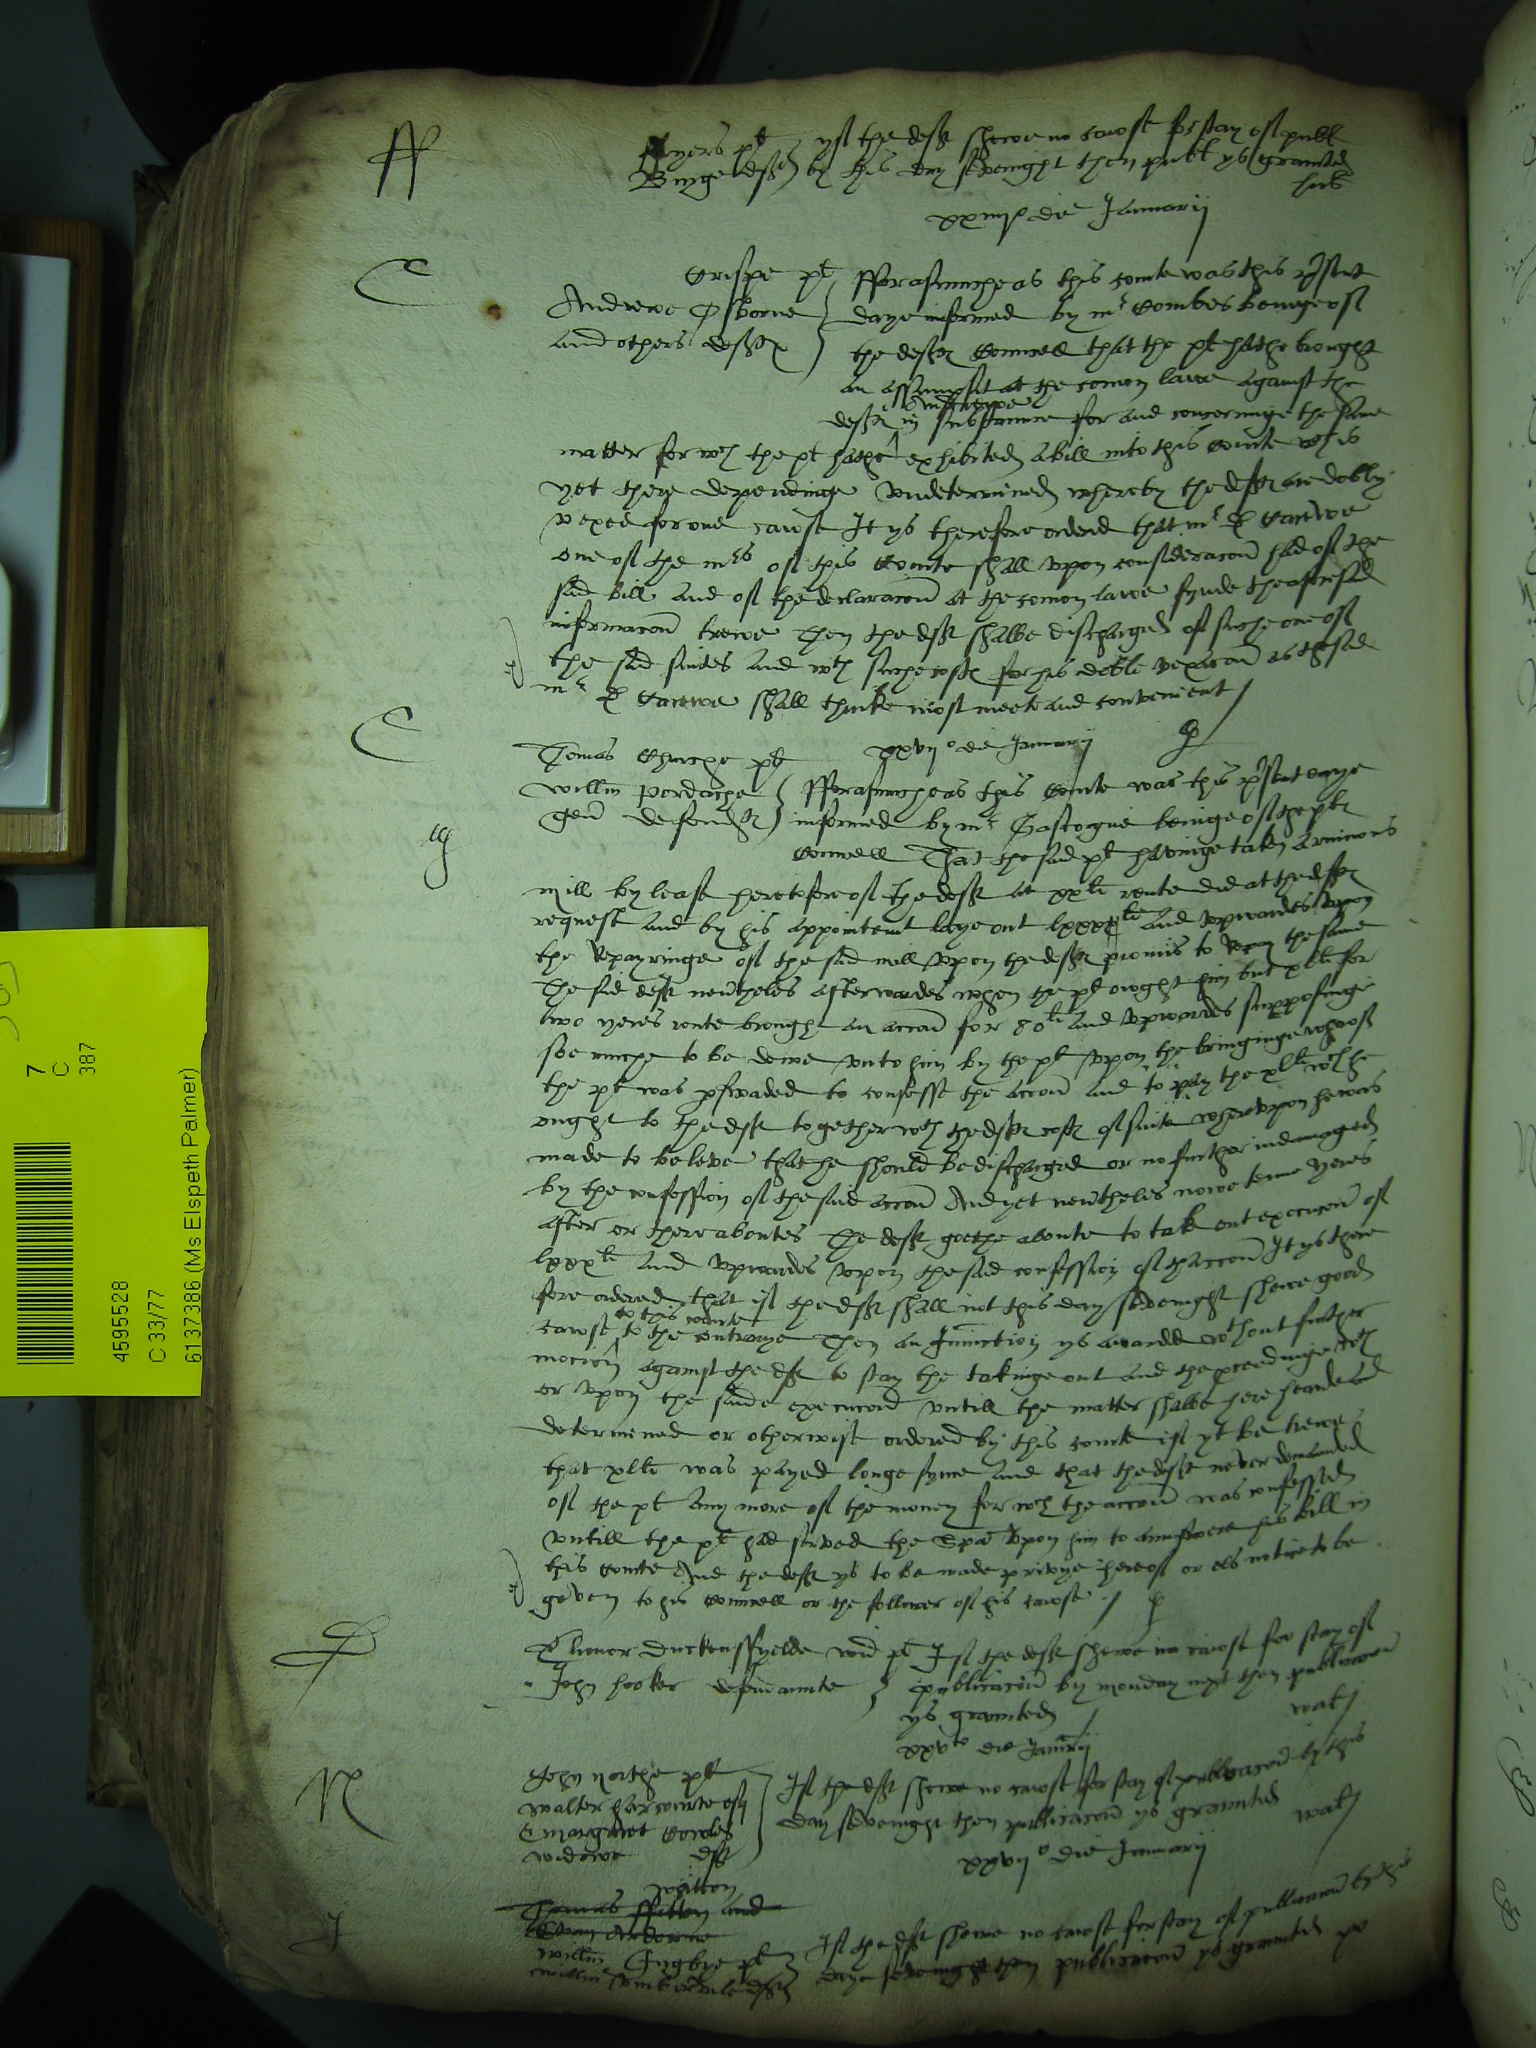 yf the deft shewe no cawse for stay of publ
Binge deft by this day sevenight then publ ys graunted
xxiiijo die Januarij
Crispe pt fforasmuche as this courte was this present
Andrewe Osborne daye informed by mr Combes beinge of
and others deftes the deftes Counsell that the pt hathe brought
an assumpsit at the comon lawe against the
deftes in substaunce for and concerninge the same
matter for wch the pt hathe exhibited a bill into this Courte wch is
yet there dependinge undetermined whereby the deftes are dobly
vexed for one cawse It ys therefore ordered that mr D Carewe
one of the mrs of this Courte shall upon consideracon had of the
said bill and of the declaracon at the comon lawe fynde the aforesaid
informacon trewe Then the deft shalbe discharged of suche one of
the said suites and wth suche costes for his doble vexacon as the said
mr D Carewe shall thinke most meete and convenient
Thomas Churche pt xxvijo die Januarij
Willm Pordache fforasmuche as this Courte was this present daye
gen defendt informed by mr Gascoigne beinge of the ptes
Counsell That the said pt havinge taken a
mill by lease heretofore of the deft at xxli rente did at the deftes
request and by his appointemt laye out lxxxli and upwardes upon
the Repayringe of the said mill upon the deftes promis to Repay the same
The said deft nevertheles afterwardes when the pt owght him but xlli for
two yeres rente brought an accon for 80li and upwardes supposinge
soe muche to be dewe unto him by the pt upon the bringinge whereof
the pt was perswaded to confesse the accon and to pay the xlli wch he
ought to the deft together wth the deftes costes of suite whereupon he was
made to beleve that he should be discharged or no further indamaged
by the confession of the said accon And yet nevertheles nowe tenne yeres
after or thereaboutes The deft goethe aboute to take out execucon of
lxxxli and upwardes upon the said confession of thaccon It ys there
fore ordered that if the deft shall not this day sevenight shewe good
to this courte
cawse to the contrarye Then an Iniunction ys awarded wthout further
mocion against the deft to stay the takinge out and the proceedinge wth
or upon the saide execucon untill the matter shalbe here hearde and
determined or otherwise ordered by this courte if yt be trewe
that xlli was payed longe synce and that the deft never demaunded
of the pt any more of the money for wch the accon was confessed
untill the pt had served the Spa upon him to aunswere his bill in
this Courte And the deft ys to be made privye hereof or els notice to be
geven to his Counsell or the follower of his cawse
Elionor Duckenffyelde wid pt If the deft shewe no cawse for stay of
John Hooker defendaunte publicacon by monday next then publicacon
ys graunted
xxvto die Januarij
John Northe pt If the deft shewe no cawse for stay of publicacon by this
Walter Harcourte esq day sevenight then publicacon ys graunted
& Margaret Cowles
widowe deft
xxvijo die Januarij
Thomas ffitton and
Willm Ingbye pt If the deft shewe no cawse for stay of publicacon by this
daye sevenight then publicacon ys graunted
7
C
387
4595528
C 33/77
6137386 (Ms Elspeth Palmer)